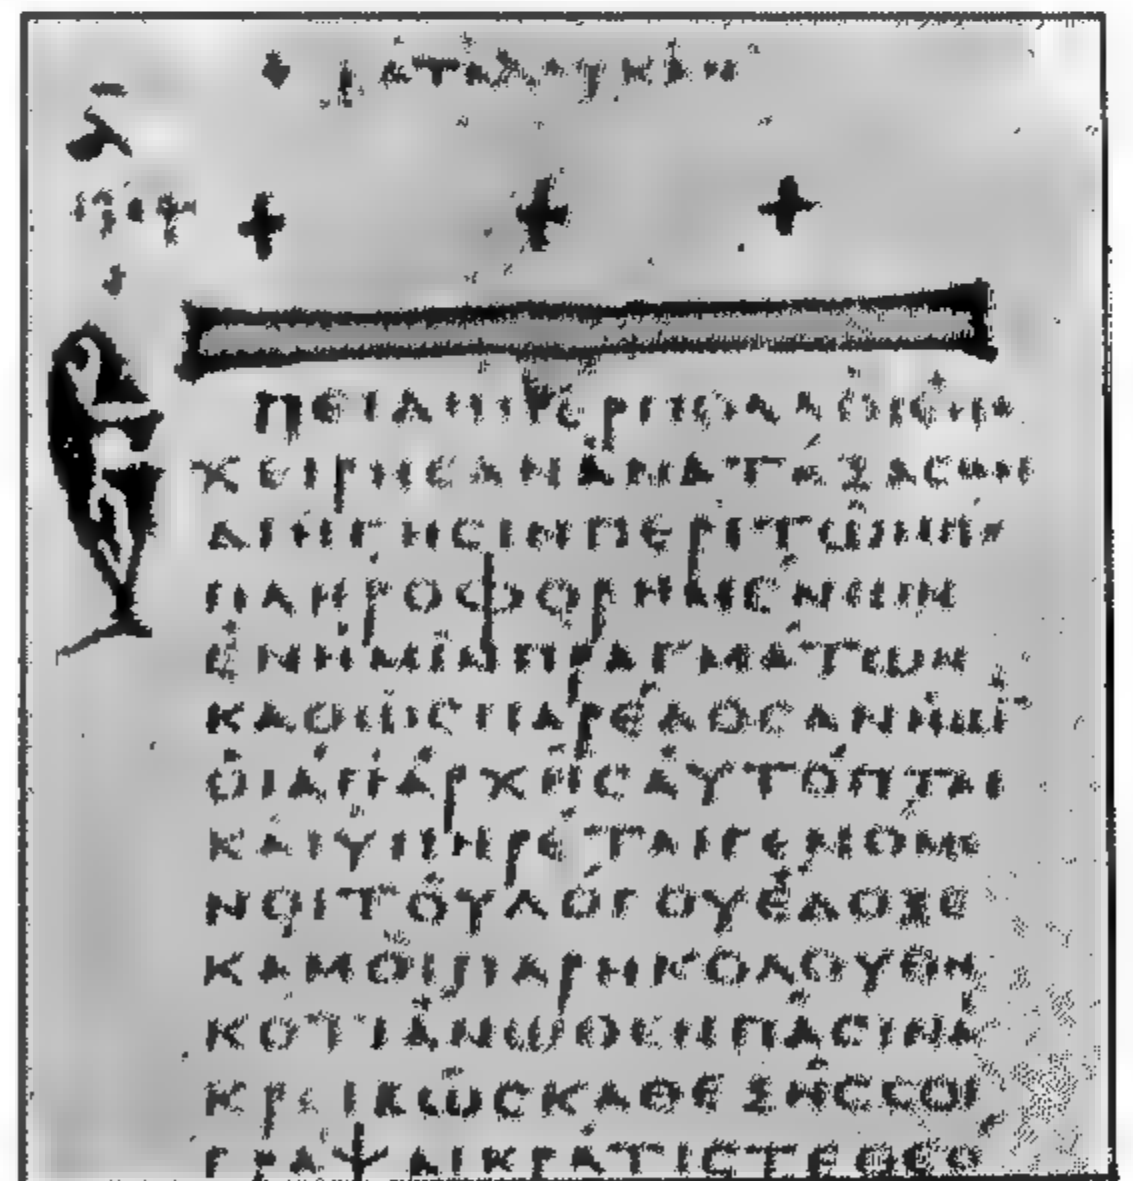 ΚΑΤΑΛΟΥΚΑΝ
ΕΠΕΙΔΗΠΕΡΠΟΛΛΟΙΕΠΕ
ΧΕΙΡΗCΑΝΑΝΑΤΑΞΑCΘΑΙ
ΔΙΗΓΗCΙΝΠΕΡΙΤΩΝΠΕ
ΠΛΗΡΟΦΟΡΗΜΕΝΩΝ
ΕΝΗΜΙΝΠΡΑΓΜΑΤΩΝ
ΚΑΘΩCΠΑΡΕΔΟCΑΝΗΜΙ
ΟΙΑΠΑΡΧΗCΑΥΤΟΠΤΑΙ
ΚΑΙΥΠΗΡΕΤΑΙΓΕΝΟΜΕ
ΝΟΙΤΟΥΛΟΓΟΥΕΔΟΞΕ
ΚΑΜΟΙΠΑΡΗΚΟΛΟΥΘΗ
ΚΟΤΙΑΝΩΘΕΝΠΑCΙΝΑ
ΚΡΕΙΒΩCΚΑΘΕΞΗCCΟΙ
ΓΡΑΨΑΙΚΡΑΤΙCΤΕΘΕΟ